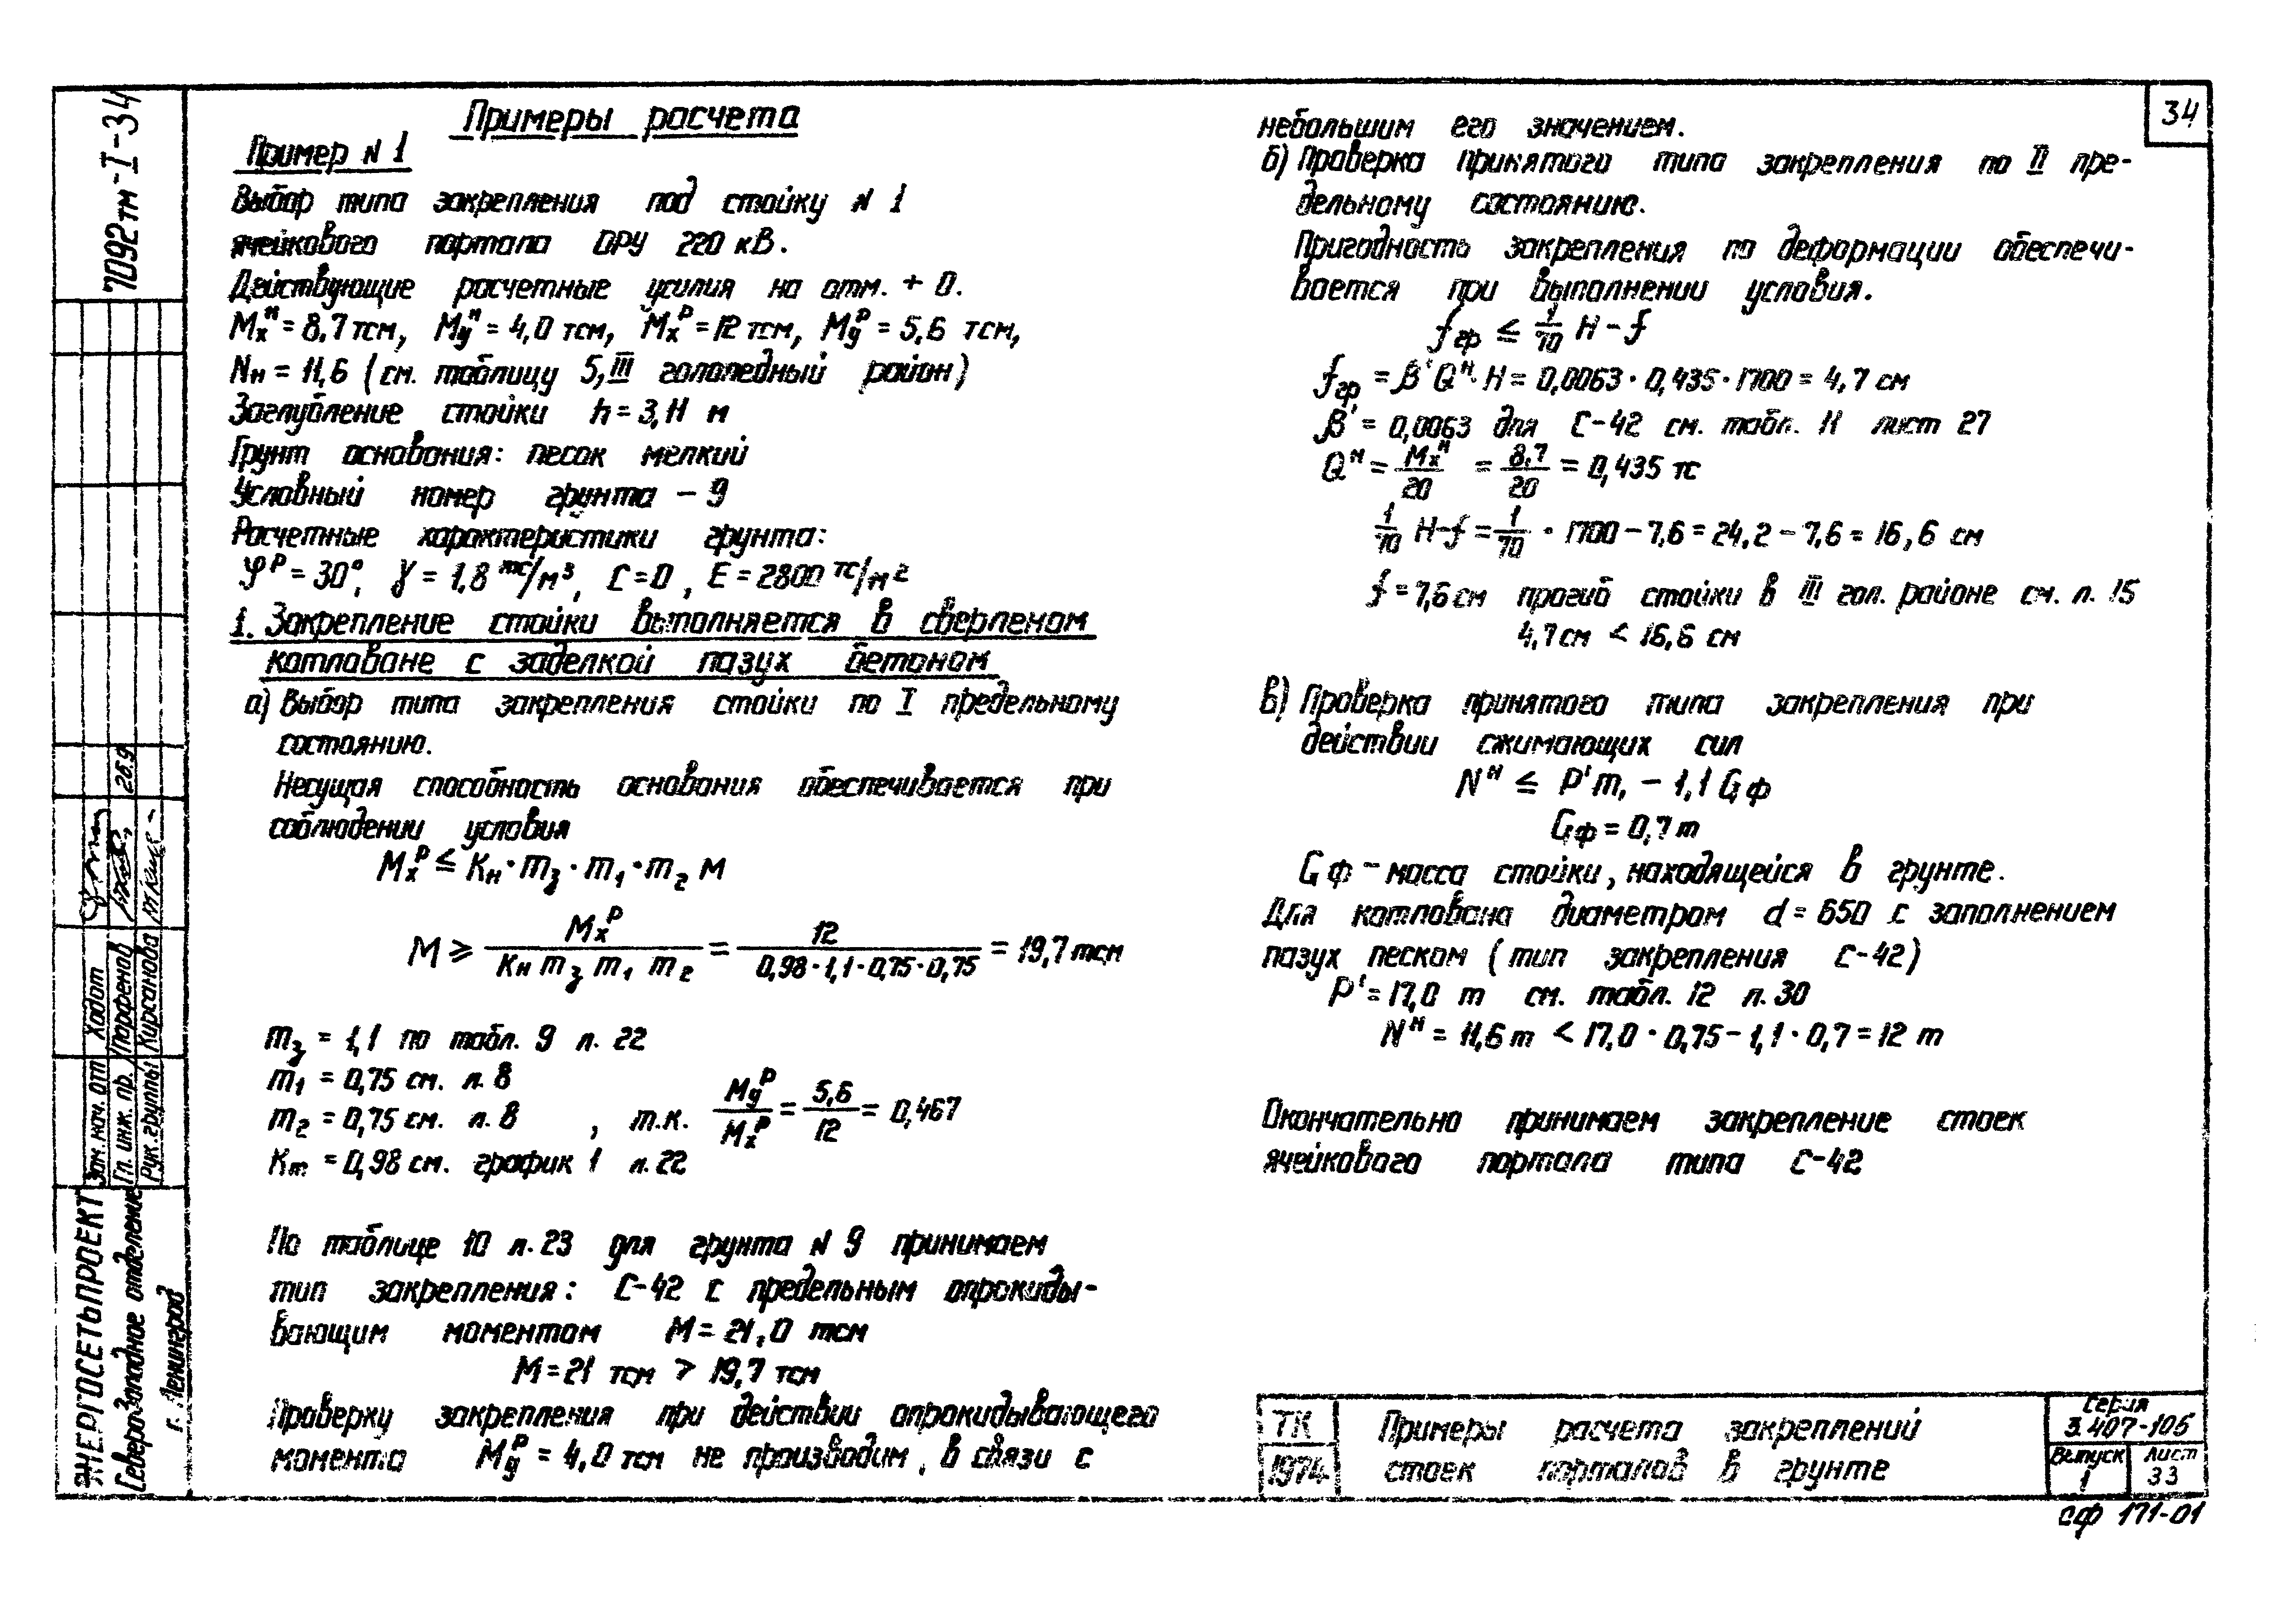 Примеры расчета
Пример N 1
Выбор типа закрепления под стойку N 1
ячейкового портала ОРУ 220 кВ.
Действующие расчетные усилия на отм. + 0.
Mxᴴ = 8,7 тсм, Myᴴ = 4,0 тсм, Mxᴾ = 12 тсм, Myᴾ = 5,6 тсм,
Nн = 11,6 (см. таблицу 5, III гололедный район)
Заглубление стойки h = 3,11 м
Грунт основания: песок мелкий
Условный номер грунта – 9
Расчетные характеристики грунта:
φᴾ = 30°, γ = 1,8 тс/м³, C = 0, E = 2800 тс/м²
1. Закрепление стойки выполняется в сверленом
котловане с заделкой пазух бетоном
а) Выбор типа закрепления стойки по I предельному
состоянию.
Несущая способность основания обеспечивается при
соблюдении условия
Mxᴾ ≤ Kн · m₃ · m₁ · m₂ M
M ≥ Mxᴾ / (Kн m₃ m₁ m₂) = 12 / (0,98 · 1,1 · 0,75 · 0,75) = 19,7 тсм
m₃ = 1,1 по табл. 9 л. 22
m₁ = 0,75 см. л. 8
m₂ = 0,75 см. л. 8 , т.к. Myᴾ / Mxᴾ = 5,6 / 12 = 0,467
Km = 0,98 см. график 1 л. 22
По таблице 10 л. 23 для грунта N 9 принимаем
тип закрепления: С-42 с предельным опрокиды-
вающим моментом M = 21,0 тсм
M = 21 тсм > 19,7 тсм
Проверку закрепления при действии опрокидывающего
момента Myᴾ = 4,0 тсм не производим, в связи с
34
небольшим его значением.
б) Проверка принятого типа закрепления по II пре-
дельному состоянию.
Пригодность закрепления по деформации обеспечи-
вается при выполнении условия.
fгр ≤ 1/70 H – f
fгр = β' Qᴴ · H = 0,0063 · 0,435 · 1700 = 4,7 см
β' = 0,0063 для С-42 см. табл. 11 лист 27
Qᴴ = Mxᴴ / 20 = 8,7 / 20 = 0,435 тс
1/70 H – f = 1/70 · 1700 – 7,6 = 24,2 – 7,6 = 16,6 см
f = 7,6 см прогиб стойки в III гол. районе см. л. 15
4,7 см < 16,6 см
в) Проверка принятого типа закрепления при
действии сжимающих сил
Nᴴ ≤ P' m₁ – 1,1 Gф
Gф = 0,7 т
Gф – масса стойки, находящейся в грунте.
Для котлована диаметром d = 650 с заполнением
пазух песком (тип закрепления С-42)
P' = 17,0 т см. табл. 12 л. 30
Nᴴ = 11,6 т < 17,0 · 0,75 – 1,1 · 0,7 = 12 т
Окончательно принимаем закрепление стоек
ячейкового портала типа С-42
ТК
1974
Примеры расчета закреплений
стоек порталов в грунте
Серия
3.407-105
Выпуск
1
Лист
33
сф 171-01
7092тм-I-34
26.9
Зам. нач. отп Хадот
Гл. инж. пр. Парфенов
Рук. группы Кирсанова
ЭНЕРГОСЕТЬПРОЕКТ
Северо-Западное отделение
г. Ленинград